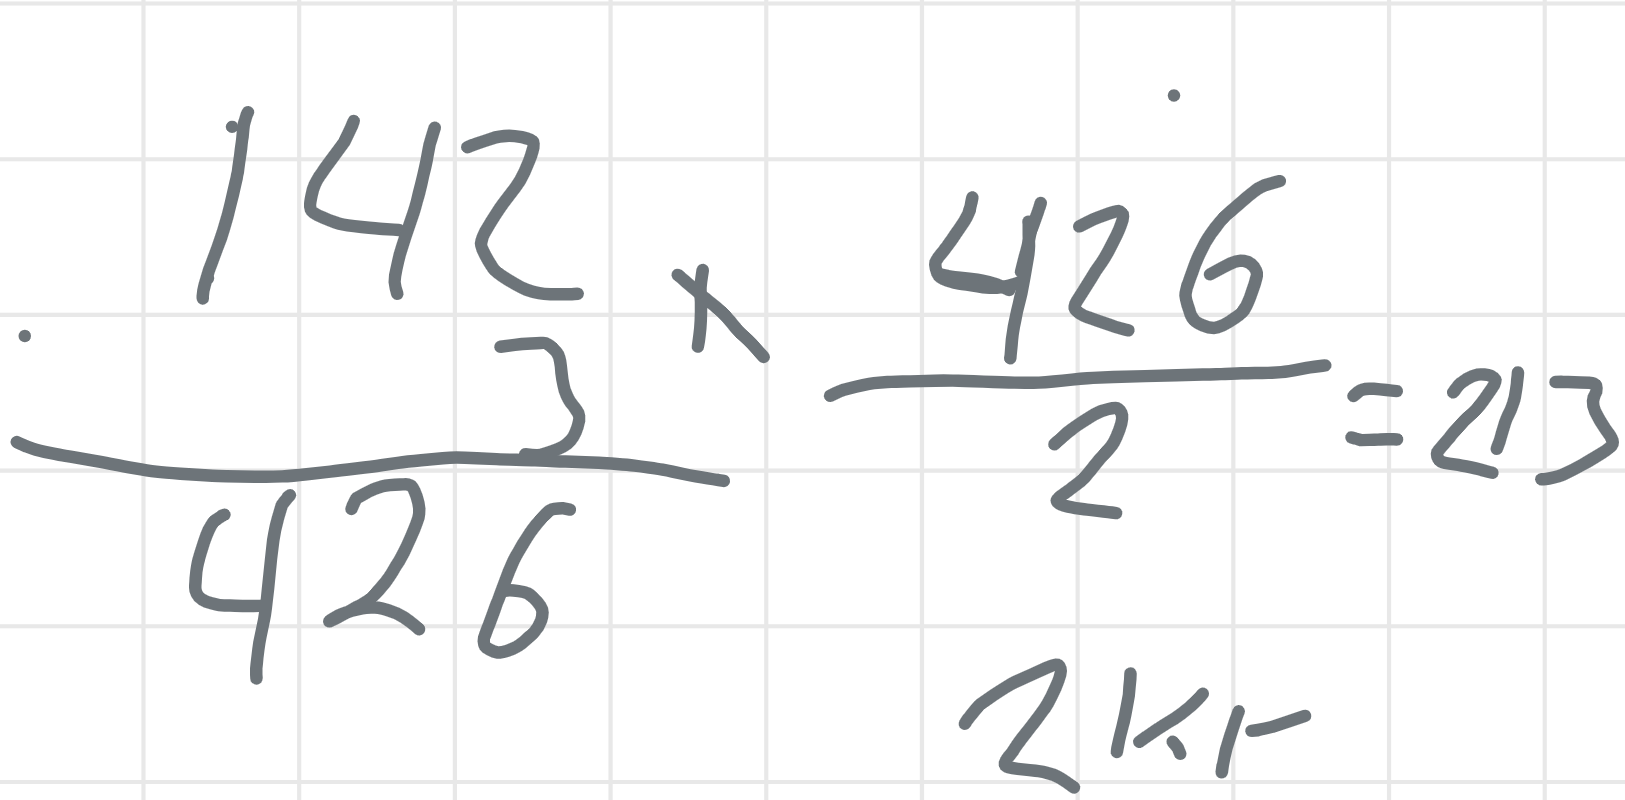 142
x 3
426
426
2
= 213
2 kr